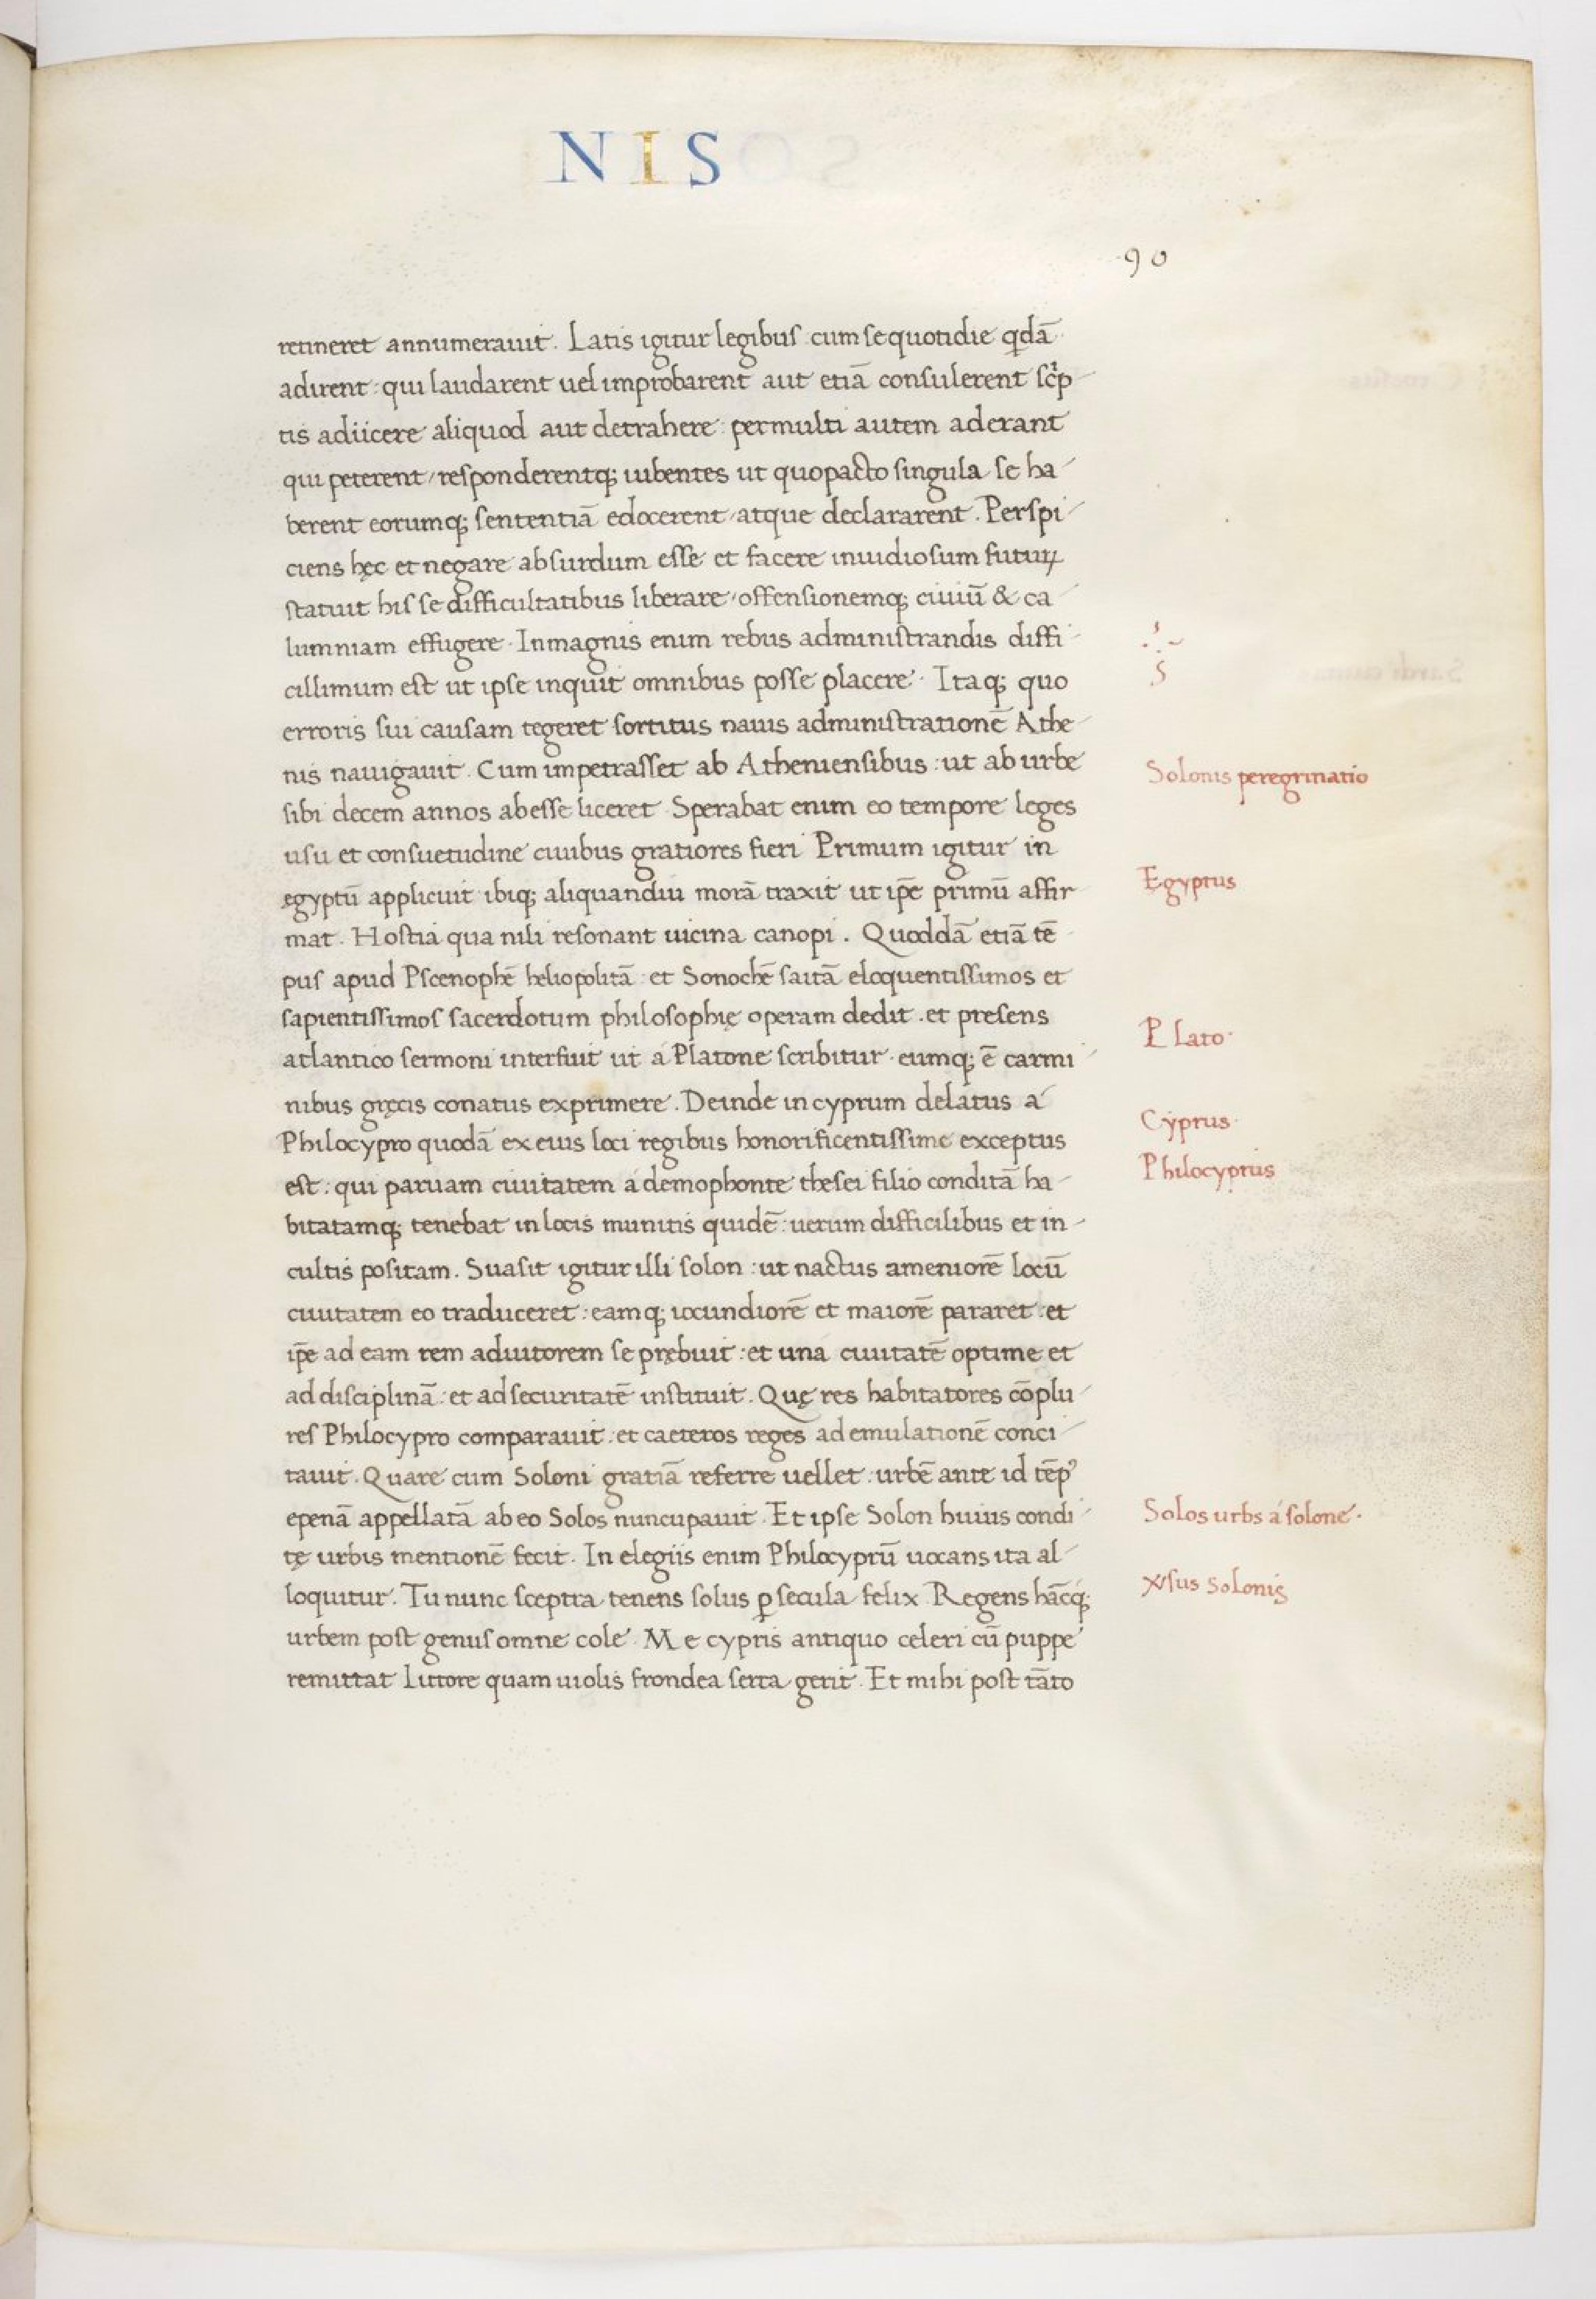 NIS
90
retineret annumerauit. Latis igitur legibus cum se quotidie qdā
adirent: qui laudarent uel improbarent aut etiā consulerent scp
tis adiicere aliquod aut detrahere: permulti autem aderant
qui peterent, responderentq; iubentes ut quo pacto singula se ha
berent eorumq; sententiā edocerent, atque declararent. Perspi
ciens hęc et negare absurdum esse et facere inuidiosum futuꝝ
statuit his se difficultatibus liberare, offensionemq; ciuiū & ca
lumniam effugere. In magnis enim rebus administrandis diffi
cillimum est ut ipse inquit omnibus posse placere. Itaq; quo
erroris sui causam tegeret sortitus nauis administrationē Athe
nis nauigauit. Cum impetrasset ab Atheniensibus: ut ab urbe
Solonis peregrinatio
sibi decem annos abesse liceret. Sperabat enim eo tempore leges
usu et consuetudine ciuibus gratiores fieri Primum igitur in
ęgyptū applicuit ibiq; aliquandiu morā traxit ut ipē primū affir
Ęgyptus
mat. Hostia qua nili resonant uicina canopi. Quoddā etiā tē
pus apud Pscenophē heliopolitā: et Sonochē saitā eloquentissimos et
sapientissimos sacerdotum philosophię operam dedit. et presens
Plato.
atlantico sermoni interfuit ut á Platone scribitur. eumq; ē carmi
nibus gręcis conatus exprimere. Deinde in cyprum delatus á
Cyprus.
Philocypro quodā ex eius loci regibus honorificentissime exceptus
Philocyprus
est: qui paruam ciuitatem á demophonte thesei filio conditā ha
bitatamq; tenebat in locis munitis quidē: uerum difficilibus et in
cultis positam. Suasit igitur illi solon: ut nactus ameniorē locū
ciuitatem eo traduceret: eamq; iocundiorē et maiorē pararet: et
ipē ad eam rem adiutorem se prębuit: et uná ciuitatē optime et
ad disciplinā: et ad securitatē instituit. Quę res habitatores cōplu
res Philocypro comparauit: et caeteros reges ad emulationē conci
tauit. Quare cum Soloni gratiā referre uellet: urbē ante id tēpꝰ
epenā appellatā ab eo Solos nuncupauit. Et ipse Solon huius condi
Solos urbs á solone.
tę urbis mentionē fecit. In elegiis enim Philocyprū uocans ita al
loquitur. Tu nunc sceptra tenens solus ꝑ secula felix Regens hācq;
sus Solonis
urbem post genus omne cole. Me cypris antiquo celeri cū puppe
remittat Littore quam uiolis frondea serta gerit. Et mihi post tāto